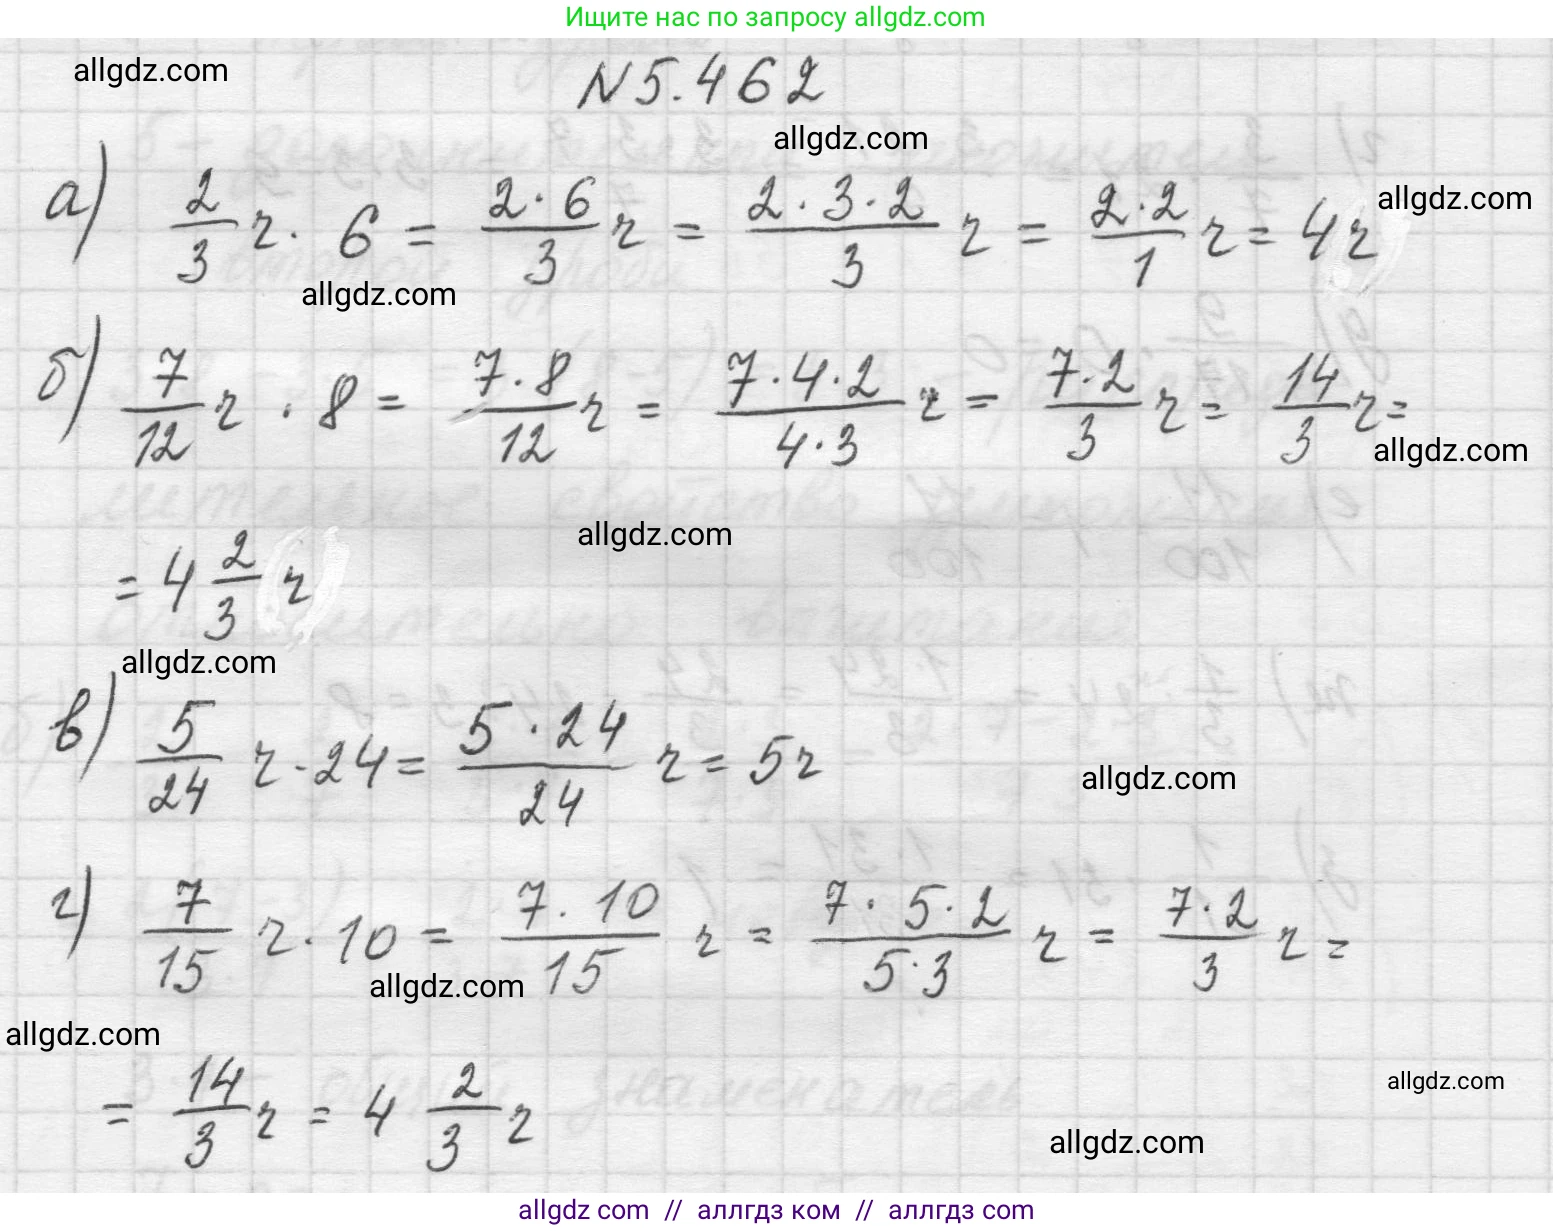 Ищите нас по запросу allgdz.com
allgdz.com
N 5.462
allgdz.com
allgdz.com
а) 2/3 г · 6 = (2 · 6)/3 г = (2 · 3 · 2)/3 г = (2 · 2)/1 г = 4 г
allgdz.com
б) 7/12 г · 8 = (7 · 8)/12 г = (7 · 4 · 2)/(4 · 3) г = (7 · 2)/3 г = 14/3 г =
allgdz.com
allgdz.com
= 4 2/3 г
allgdz.com
в) 5/24 г · 24 = (5 · 24)/24 г = 5 г
allgdz.com
г) 7/15 г · 10 = (7 · 10)/15 г = (7 · 5 · 2)/(5 · 3) г = (7 · 2)/3 г =
allgdz.com
allgdz.com
= 14/3 г = 4 2/3 г
allgdz.com
allgdz.com
allgdz com // аллгдз ком // аллгдз com